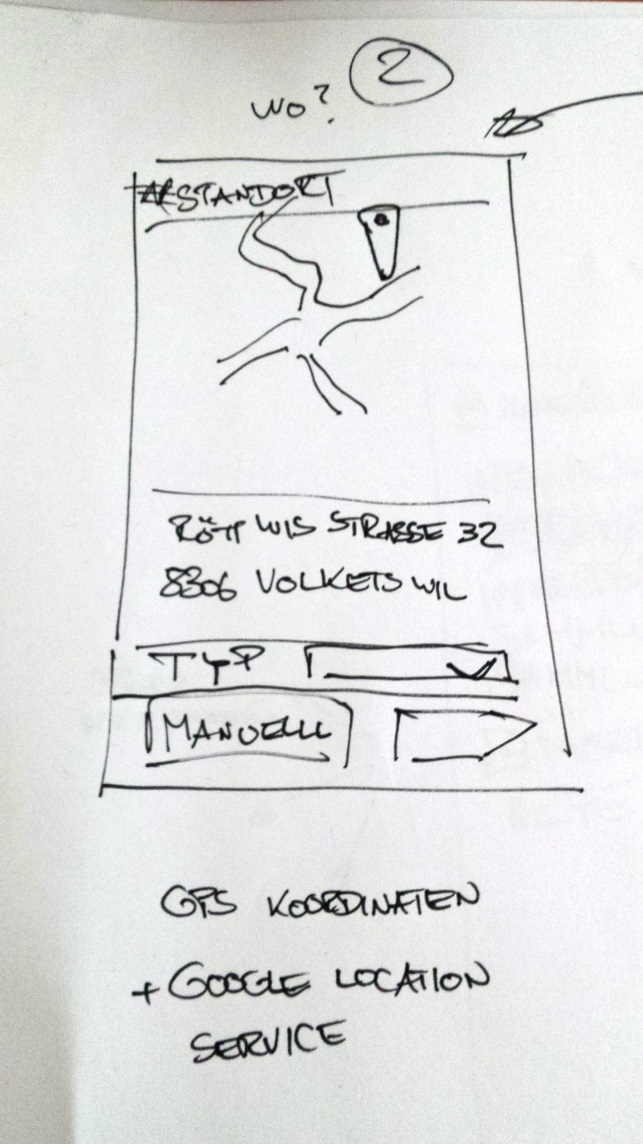 2
WO?
STANDORT
STRASSE 32
8306 VOLKETSWIL
TYP
MANUELL
GPS KOORDINATEN
+ GOOGLE LOCATION
SERVICE